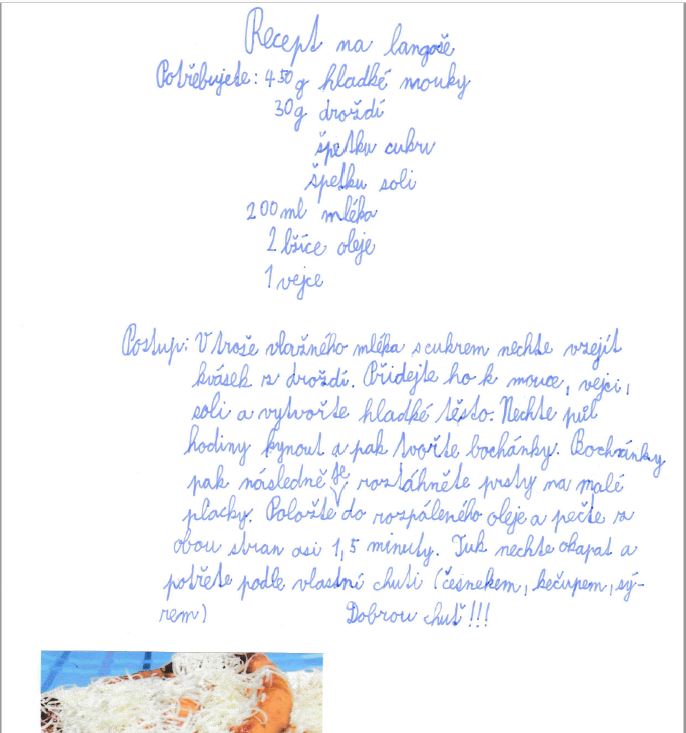 Recept na langoše
Potřebujete: 450g hladké mouky
30g droždí
špetku cukru
špetku soli
200ml mléka
2 lžíce oleje
1 vejce
Postup: V troše vlažného mléka s cukrem nechte vzejít
kvásek z droždí. Přidejte ho k mouce, vejci,
soli a vytvořte hladké těsto. Nechte půl
hodiny kynout a pak tvořte bochánky. Bochánky
pak následně je roztáhněte prsty na malé
placky. Položte do rozpáleného oleje a pečte z
obou stran asi 1,5 minuty. Tuk nechte okapat a
potřete podle vlastní chuti (česnekem, kečupem, sý-
rem) Dobrou chuť!!!